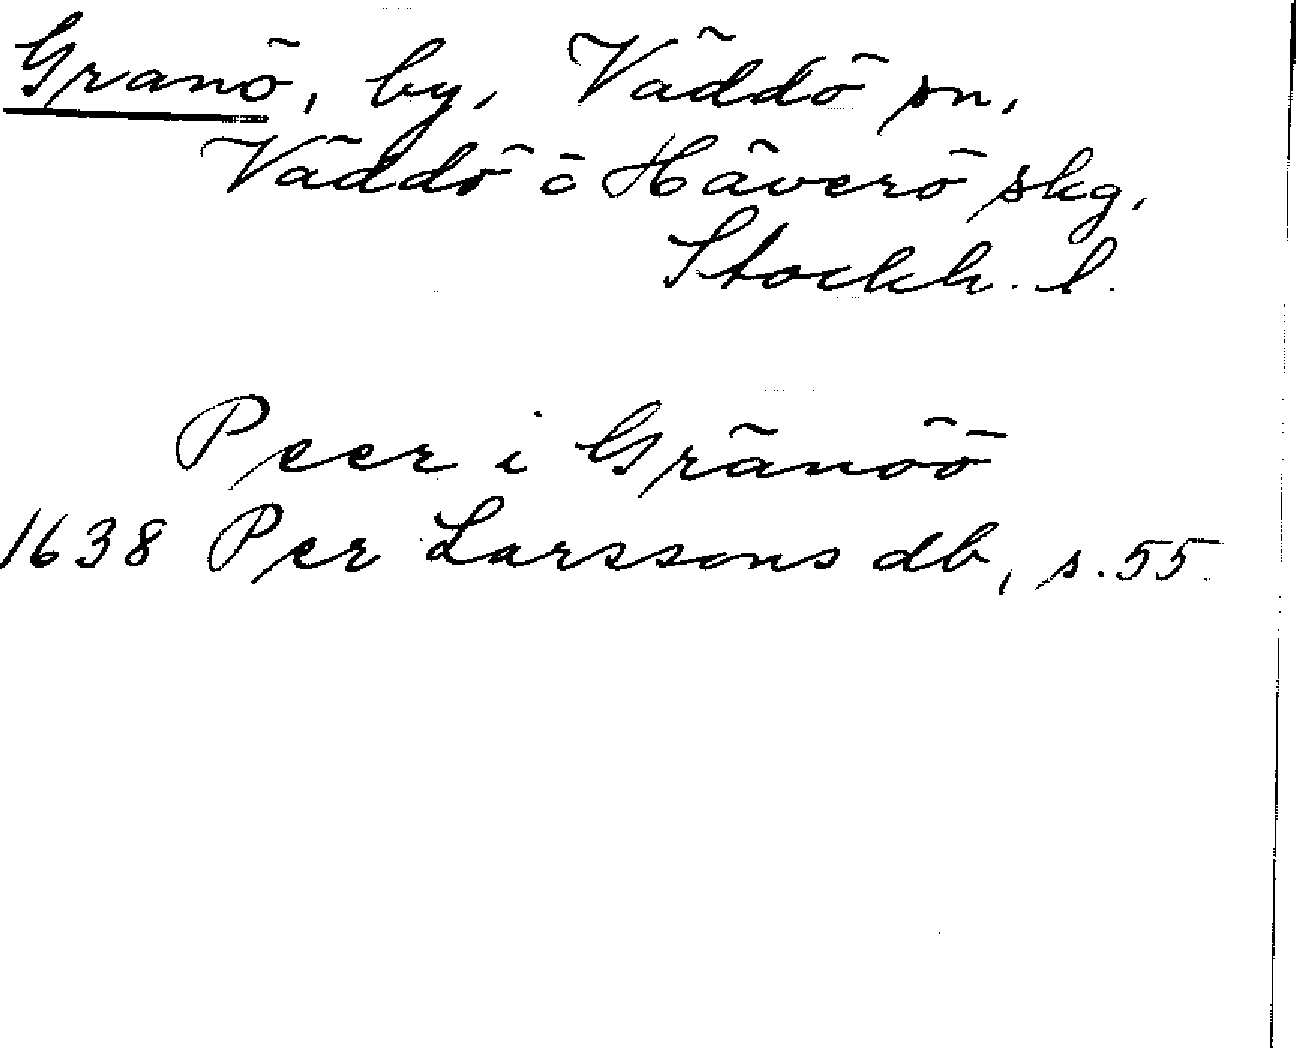 Granö, by, Väddö sn,
Väddö o Häverö skg,
Stockh. l.
Peer i Gränöö
1638 Per Larssons db, s. 55.